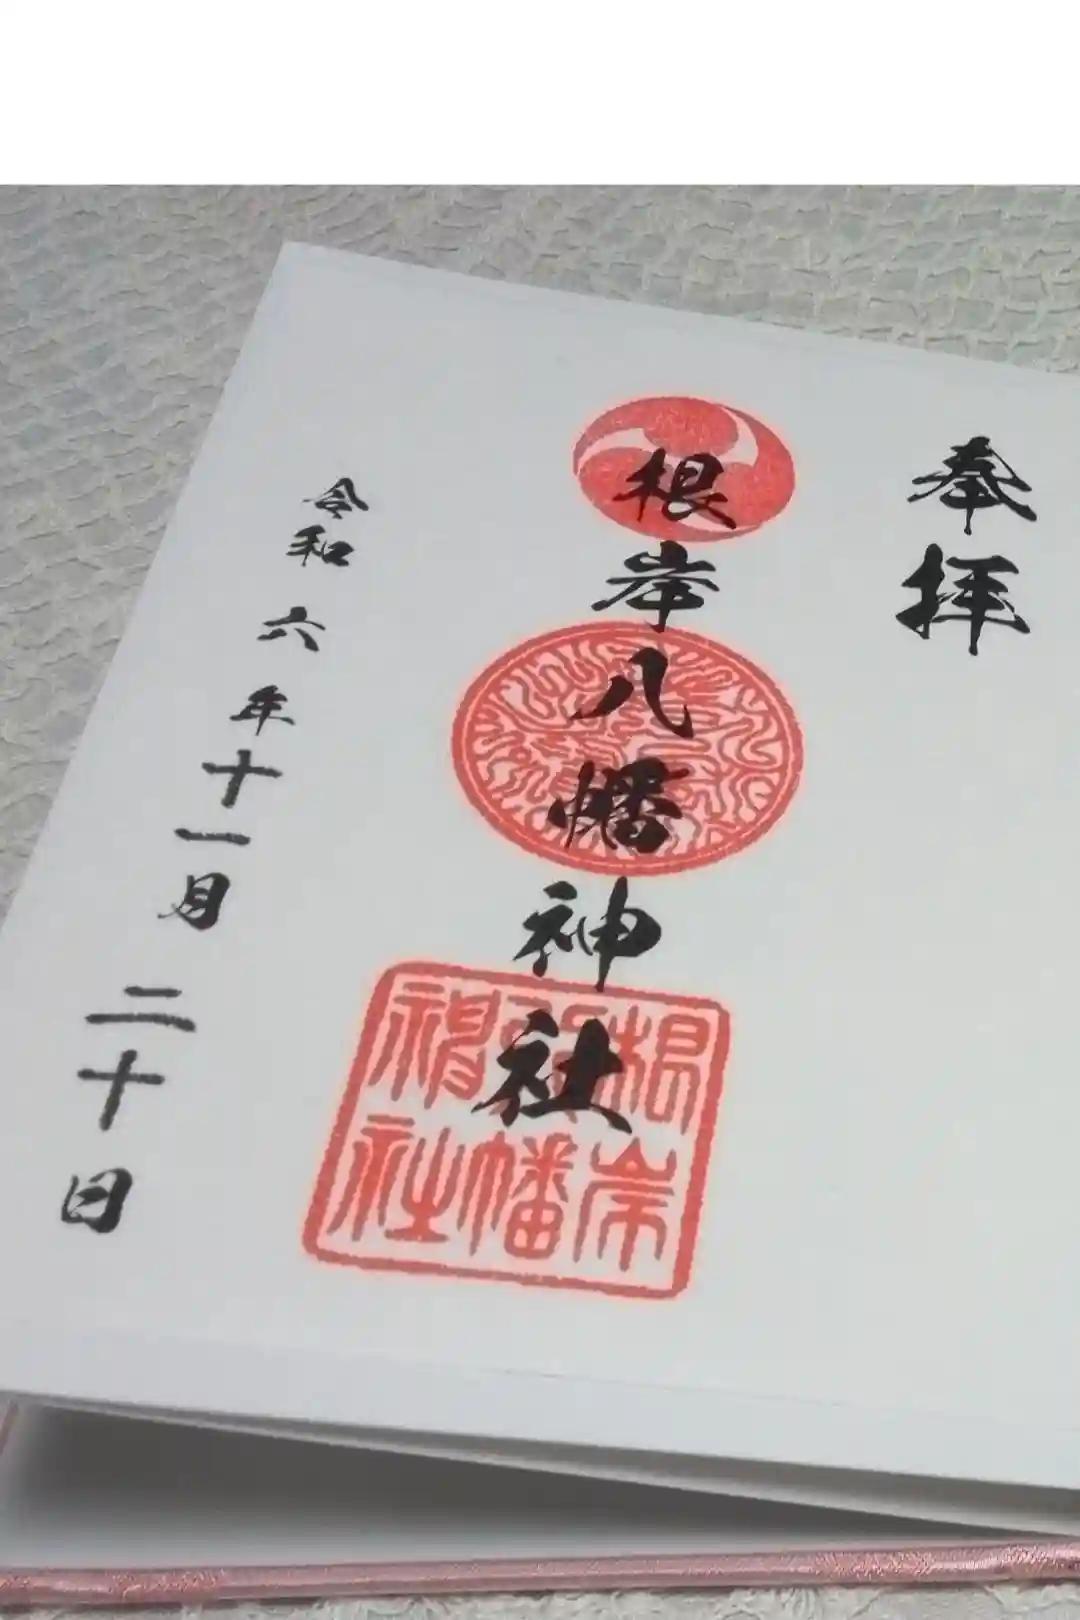 奉拝
根岸八幡神社
令和六年十一月二十日
根岸
八幡
神社